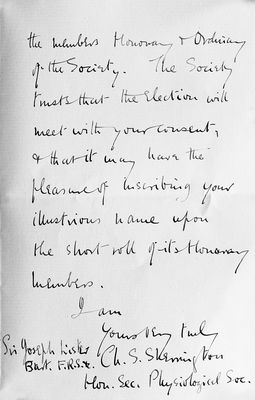 the members Honorary & Ordinary
of the Society. The Society
trusts that the Election will
meet with your consent,
& that it may have the
pleasure of inscribing your
illustrious name upon
the short roll of its Honorary
members.
I am
Yours very truly
Ch. S. Sherrington
Hon. Sec. Physiological Soc.
Sir Joseph Lister
Bart. F.R.S. &c.